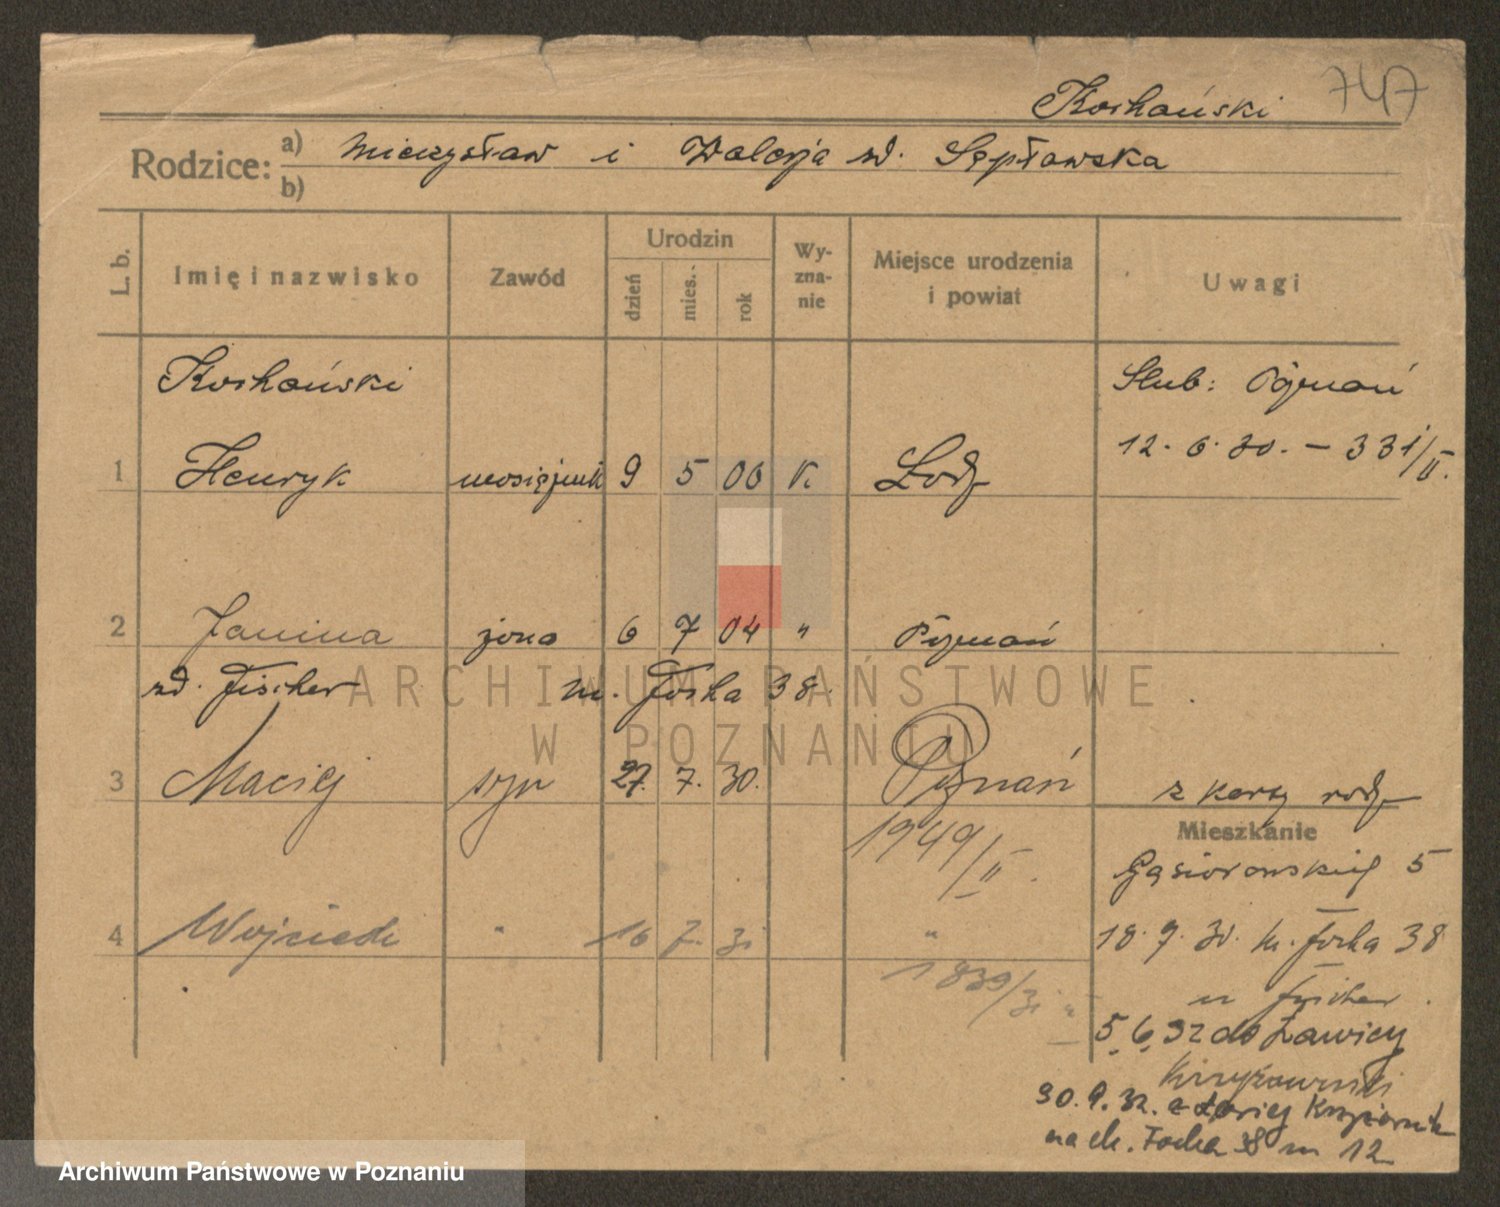 747
Kochański
Rodzice: a) Mieczysław i Walerja zd. Sępławska
b)
L. b. Imię i nazwisko Zawód Urodzin dzień mies. rok Wy-zna-nie Miejsce urodzenia i powiat Uwagi
Kochański Ślub: Poznań
12. 6. 30. – 331/II.
1 Henryk mosiężnik 9 5 06 K Łódź
2 Janina żona 6 7 04 " Poznań
zd. Fischer m. Focha 38.
ARCHIWUM PAŃSTWOWE
W POZNANIU
3 Maciej syn 27. 7. 30. Poznań z karty rodz
1949/II.
Mieszkanie
Gąsiorowskich 5
4 Wojciech " 16 7. 31 " 18. 9. 30. m. Focha 38
1839/31
u Fischer.
5. 6. 32 do Ławicy
30. 9. 32. z Ławicy
na m. Focha 38 m 12
Archiwum Państwowe w Poznaniu